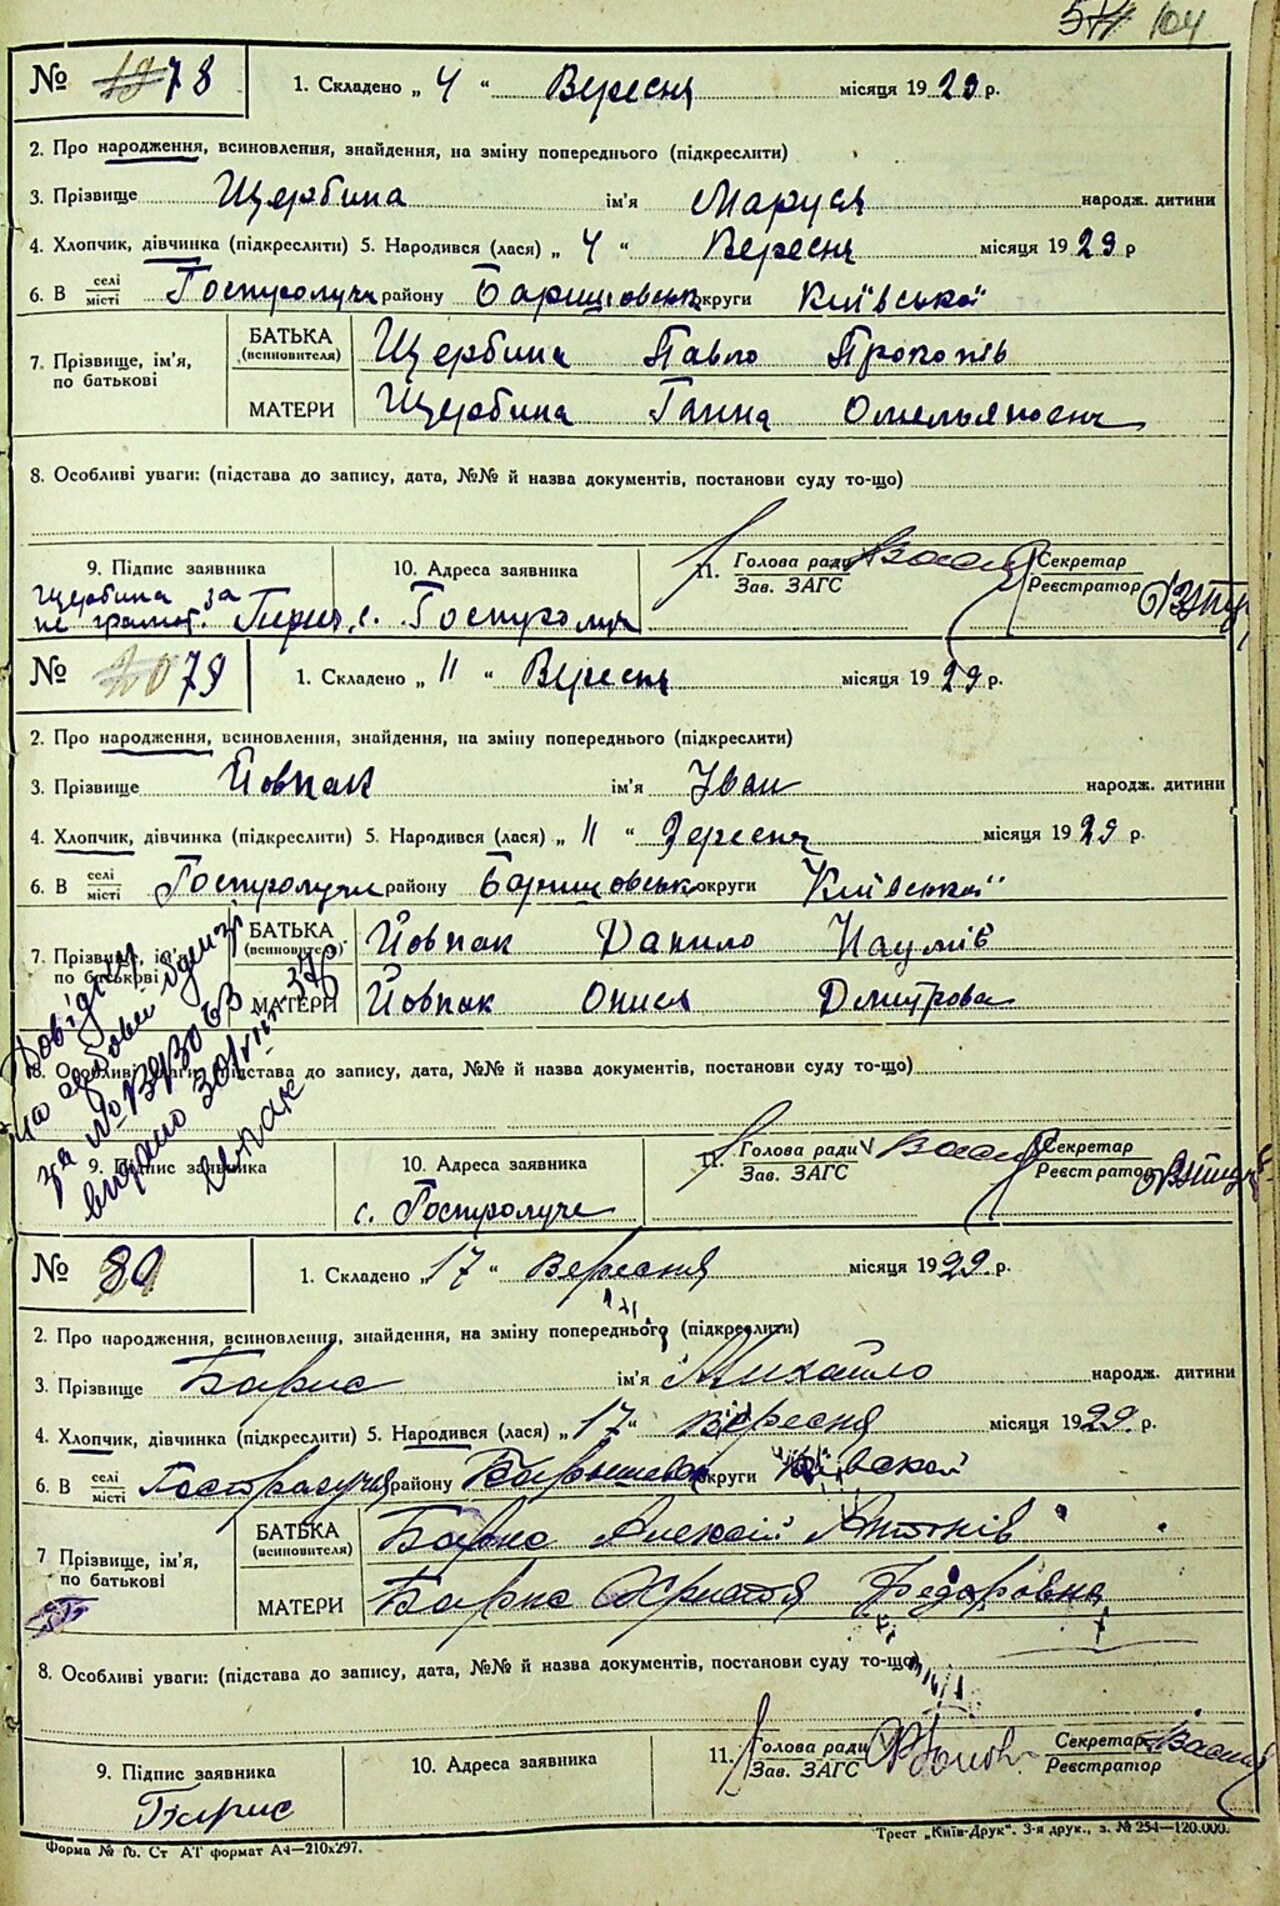 104
№ 78 1. Складено „ 4 “ Вересня місяця 1929 р.
2. Про народження, всиновлення, знайдення, на зміну попереднього (підкреслити)
3. Прізвище Щербина ім'я Маруся народж. дитини
4. Хлопчик, дівчинка (підкреслити) 5. Народився (лася) „ 4 “ Вересня місяця 1929 р
6. В селі/місті Гостролуччі району Баришовськ округи Київської
7. Прізвище, ім'я, по батькові БАТЬКА (всиновителя) Щербина Павло Прокопів
МАТЕРИ Щербина Ганна Омельяновна
8. Особливі уваги: (підстава до запису, дата, №№ й назва документів, постанови суду то-що)
9. Підпис заявника 10. Адреса заявника 11. Голова ради Секретар
Зав. ЗАГС Реєстратор
Щербина за
не грамот. с. Гостролуч
№ 79 1. Складено „ 11 “ Вересня місяця 1929 р.
2. Про народження, всиновлення, знайдення, на зміну попереднього (підкреслити)
3. Прізвище Йовпак ім'я Іван народж. дитини
4. Хлопчик, дівчинка (підкреслити) 5. Народився (лася) „ 11 “ Вересня місяця 1929 р.
6. В селі/місті Гостролучи району Баришовськ округи Київської
7. Прізвище, ім'я, по батькові БАТЬКА (всиновителя) Йовпак Данило Наумів
МАТЕРИ Йовпак Опися Дмитрова
8. Особливі уваги: (підстава до запису, дата, №№ й назва документів, постанови суду то-що)
9. Підпис заявника 10. Адреса заявника 11. Голова ради Секретар
Зав. ЗАГС Реєстратор
с. Гостролуче
№ 80 1. Складено „ 17 “ Вересня місяця 1929 р.
2. Про народження, всиновлення, знайдення, на зміну попереднього (підкреслити)
3. Прізвище Барис ім'я Михайло народж. дитини
4. Хлопчик, дівчинка (підкреслити) 5. Народився (лася) „ 17 “ Вересня місяця 1929 р.
6. В селі/місті району округи
7 Прізвище, ім'я, по батькові БАТЬКА (всиновителя) Барис Алексій Антонів
МАТЕРИ Барис Христя Федоровна
8. Особливі уваги: (підстава до запису, дата, №№ й назва документів, постанови суду то-що)
9. Підпис заявника 10. Адреса заявника 11. Голова ради Секретар
Зав. ЗАГС Реєстратор
Барис
Форма № 1б. Ст АТ формат А4—210х297. Трест „Київ-Друк“. 3-я друк., з. № 254—120.000.